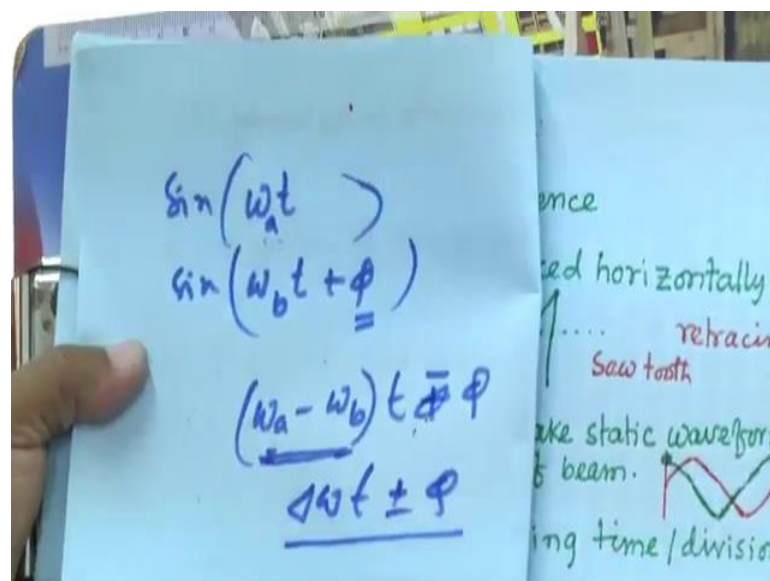 sin(ω_a t )
sin(ω_b t + φ)
(ω_a - ω_b) t φ
Δω t ± φ
ence
ced horizontally
....
retracin
Saw tooth
ake static wavefor
beam.
ing time/divisio